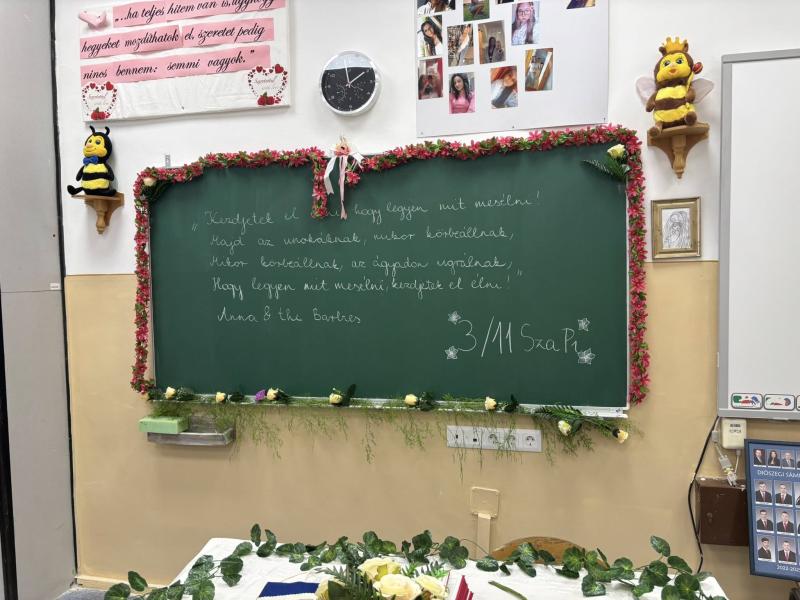 „..ha teljes hitem van is, úgyhogy
hegyeket mozdíthatok el, szeretet pedig
nincs bennem: semmi vagyok."
„Kezdjetek el hogy legyen mit mesélni!
Majd az unokáknak, mikor körbeállnak,
Mikor körbeállnak, az ágyadon ugrálnak,
Hogy legyen mit mesélni, kezdjetek el élni!"
Anna & the Barbies
3/11 SzaPi
DIÓSZEGI SÁM